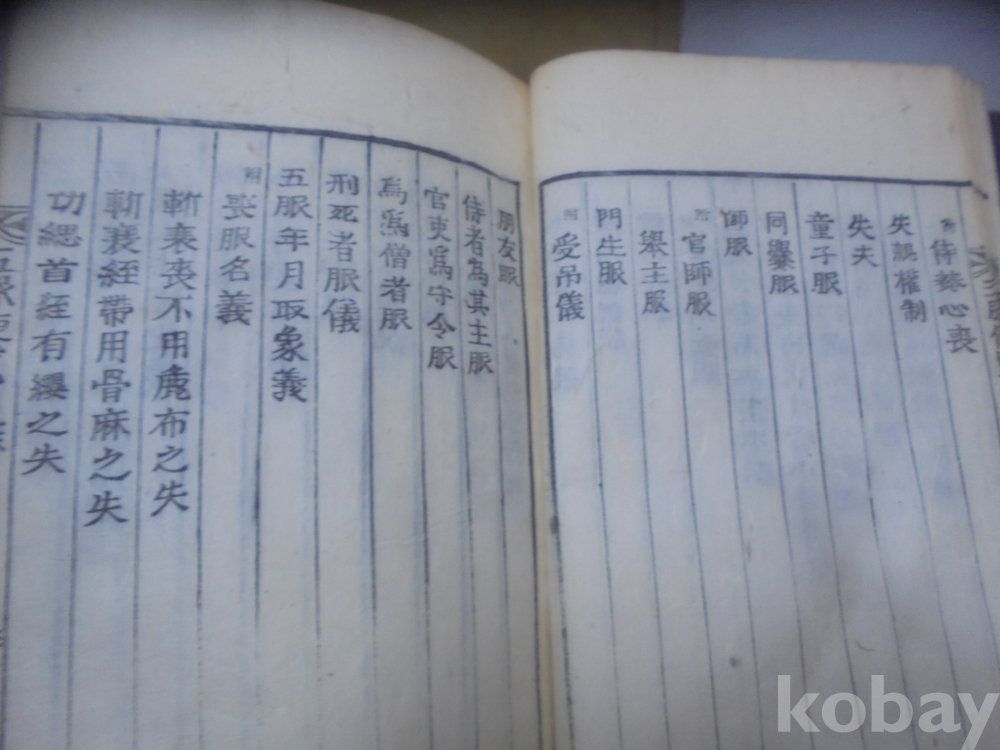 附 侍養心喪
失誤權制
失夫
童子服
同爨服
師服
附 官師服
舉主服
門生服
附 受吊儀
朋友服
侍者為其主服
官吏為守令服
爲爲僧者服
刑死者服儀
五服年月取象義
附 喪服名義
斬衰喪不用麄布之失
斬衰絰帶用骨麻之失
功緦首絰有纓之失
kobay